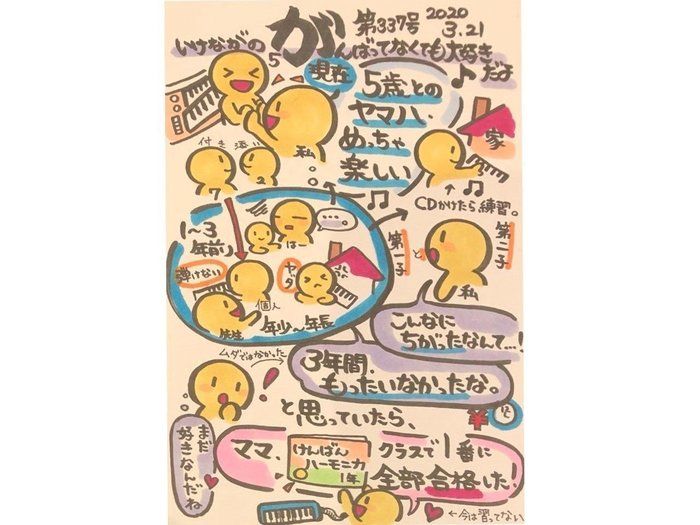 第337号 2020
3.21
いけながの
がんばってなくても大好きだよ
5
現在
5歳との
ヤマハ、
めっちゃ
楽しい
私
付き添い
7
2
家
CDかけたら練習。
1〜3
年前
弾けない
先生
個人
年少〜年長
は…
ヤダ
第一子
と
第二子
私
こんなに
ちがったなんて…!
3年間、
もったいなかったな。
ムダではなかった
¥
と思っていたら、
まだ
好きなんだね
ママ、
けんばん
ハーモニカ
1年
クラスで1番に
全部合格した!
←今は習ってない